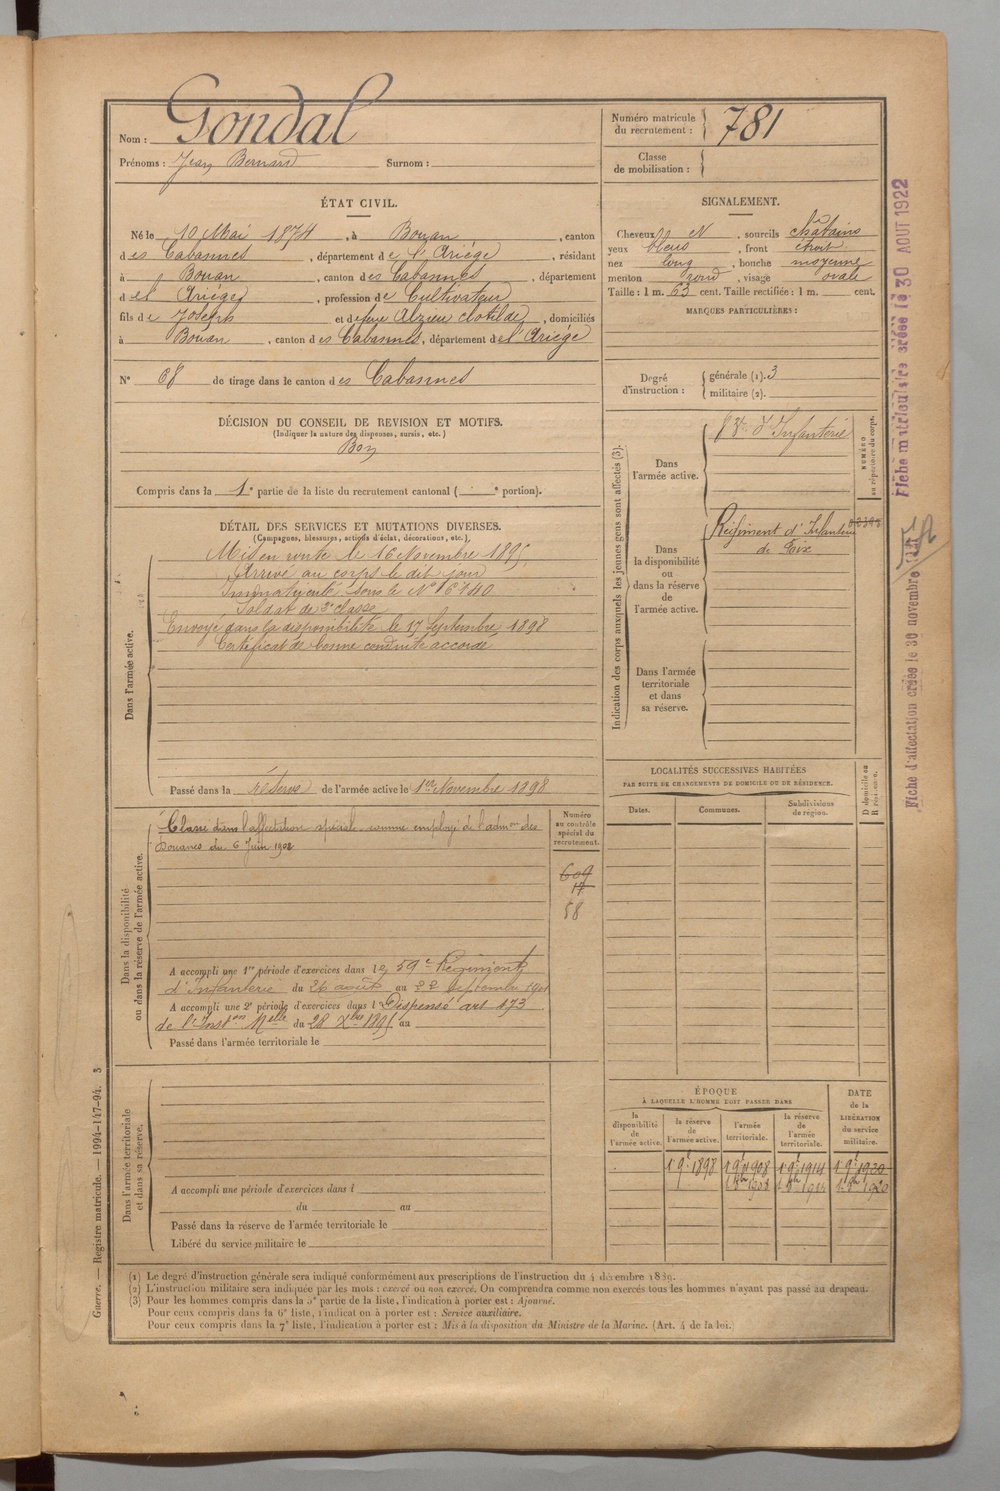 Nom : Gondal
Prénoms : Jean Bernard Surnom :
Numéro matricule du recrutement : 781
Classe de mobilisation :
ÉTAT CIVIL.
Né le 10 Mai 1874, à Bouan, canton
des Cabannes, département de l'Ariége, résidant
à Bouan, canton des Cabannes, département
del Ariége, profession de Cultivateur
fils de Joseph et de feue Alzieu Clotilde, domiciliés
à Bouan, canton des Cabannes, département de l'Ariége
N° 68 de tirage dans le canton des Cabannes
DÉCISION DU CONSEIL DE REVISION ET MOTIFS.
(Indiquer la nature des dispenses, sursis, etc.)
Bon
Compris dans la 1e partie de la liste du recrutement cantonal ( e portion).
DÉTAIL DES SERVICES ET MUTATIONS DIVERSES.
(Campagnes, blessures, actions d'éclat, décorations, etc.)
Dans l'armée active.
Mis en route le 16 Novembre 1895
Arrivé au corps le dit jour
Immatriculé sous le N°
Soldat de 2e classe
Envoyé dans la disponibilité le 17 Septembre 1898
Certificat de bonne conduite accordé
Passé dans la réserve de l'armée active le 1er Novembre 1898
Dans la disponibilité
ou dans la réserve de l'armée active.
Classé dans l'affectation spéciale comme employé de l'admon des
Douanes du 6 Juin 1902
Numéro
au contrôle
spécial du
recrutement.
609
17
58
A accompli une 1re période d'exercices dans le 59e Régiment
d'Infanterie du 26 août au 22 Septembre 1901
A accompli une 2e période d'exercices dans l Dispensé art 173
de l'Inston Melle du 28 Xbre 1895 au
Passé dans l'armée territoriale le
Dans l'armée territoriale
et dans sa réserve.
A accompli une période d'exercices dans l
du au
Passé dans la réserve de l'armée territoriale le
Libéré du service militaire le
SIGNALEMENT.
Cheveux N, sourcils châtains
yeux bleus, front étroit
nez long, bouche moyenne
menton rond, visage ovale
Taille : 1 m. 63 cent. Taille rectifiée : 1 m. cent.
MARQUES PARTICULIÈRES :
Degré d'instruction : générale (1). 3
militaire (2).
Indication des corps auxquels les jeunes gens sont affectés (3).
NUMÉRO
au répertoire du corps.
Dans
l'armée active.
d'Infanterie
Dans
la disponibilité
ou
dans la réserve
de
l'armée active.
Régiment d'Infanterie
de Foix
Dans l'armée
territoriale
et dans
sa réserve.
LOCALITÉS SUCCESSIVES HABITÉES
PAR SUITE DE CHANGEMENTS DE DOMICILE OU DE RÉSIDENCE.
Dates. Communes. Subdivisions de région. D domicile ou R résidence.
ÉPOQUE
À LAQUELLE L'HOMME DOIT PASSER DANS
DATE
de la
LIBÉRATION
du service
militaire.
la disponibilité de l'armée active. la réserve de l'armée active. l'armée territoriale. la réserve de l'armée territoriale.
1 9e 1898 1 9e 1908 1 9e 1914 1 9e 1920
(1) Le degré d'instruction générale sera indiqué conformément aux prescriptions de l'instruction du 4 décembre 1889.
(2) L'instruction militaire sera indiquée par les mots : exercé ou non exercé. On comprendra comme non exercés tous les hommes n'ayant pas passé au drapeau.
(3) Pour les hommes compris dans la 5e partie de la liste, l'indication à porter est : Ajourné.
Pour ceux compris dans la 6e liste, l'indication à porter est : Service auxiliaire.
Pour ceux compris dans la 7e liste, l'indication à porter est : Mis à la disposition du Ministre de la Marine. (Art. 4 de la loi.)
Guerre. — Registre matricule. — 1994-147-94. 3
Fiche matriculaire créée le 30 AOUT 1922
Fiche d'affectation créée le 30 novembre